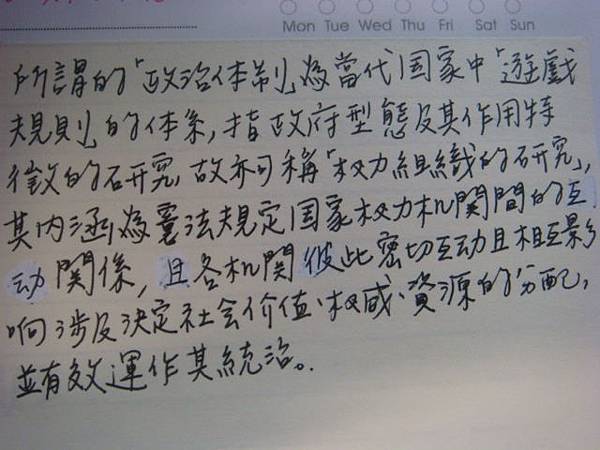 Mon Tue Wed Thu Fri Sat Sun
所謂的「政治体制」為當代国家中「遊戲
規則」的体系,指政府型態及其作用特
徵的研究,故亦可稱「权力組織的研究」,
其內涵為憲法規定国家权力机関間的互
动関係,且各机関彼此密切互动且相互影
响涉及決定社会价值、权威、資源的分配,
並有效運作其統治。